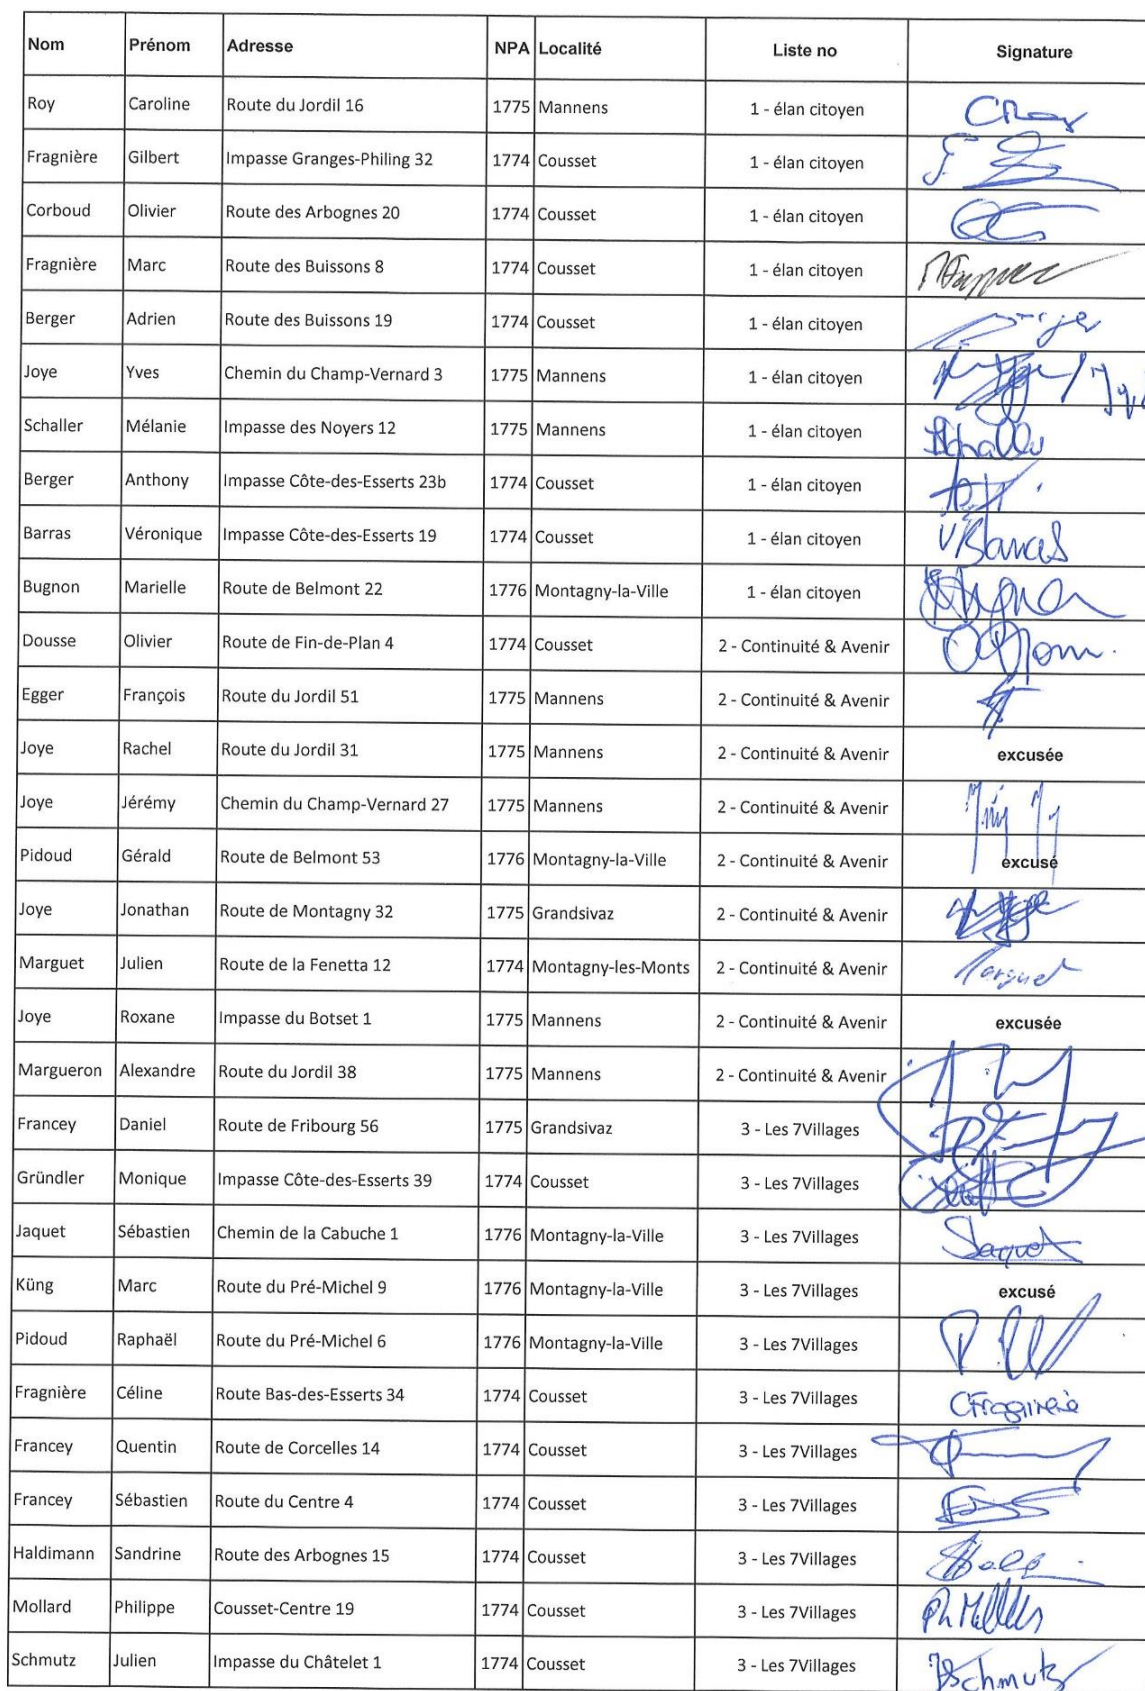 Nom Prénom Adresse NPA Localité Liste no Signature
Roy Caroline Route du Jordil 16 1775 Mannens 1 - élan citoyen CRoy
Fragnière Gilbert Impasse Granges-Philing 32 1774 Cousset 1 - élan citoyen
Corboud Olivier Route des Arbognes 20 1774 Cousset 1 - élan citoyen
Fragnière Marc Route des Buissons 8 1774 Cousset 1 - élan citoyen
Berger Adrien Route des Buissons 19 1774 Cousset 1 - élan citoyen
Joye Yves Chemin du Champ-Vernard 3 1775 Mannens 1 - élan citoyen
Schaller Mélanie Impasse des Noyers 12 1775 Mannens 1 - élan citoyen
Berger Anthony Impasse Côte-des-Esserts 23b 1774 Cousset 1 - élan citoyen
Barras Véronique Impasse Côte-des-Esserts 19 1774 Cousset 1 - élan citoyen
Bugnon Marielle Route de Belmont 22 1776 Montagny-la-Ville 1 - élan citoyen
Dousse Olivier Route de Fin-de-Plan 4 1774 Cousset 2 - Continuité & Avenir
Egger François Route du Jordil 51 1775 Mannens 2 - Continuité & Avenir
Joye Rachel Route du Jordil 31 1775 Mannens 2 - Continuité & Avenir excusée
Joye Jérémy Chemin du Champ-Vernard 27 1775 Mannens 2 - Continuité & Avenir
Pidoud Gérald Route de Belmont 53 1776 Montagny-la-Ville 2 - Continuité & Avenir excusé
Joye Jonathan Route de Montagny 32 1775 Grandsivaz 2 - Continuité & Avenir
Marguet Julien Route de la Fenetta 12 1774 Montagny-les-Monts 2 - Continuité & Avenir Marguet
Joye Roxane Impasse du Botset 1 1775 Mannens 2 - Continuité & Avenir excusée
Margueron Alexandre Route du Jordil 38 1775 Mannens 2 - Continuité & Avenir
Francey Daniel Route de Fribourg 56 1775 Grandsivaz 3 - Les 7Villages
Gründler Monique Impasse Côte-des-Esserts 39 1774 Cousset 3 - Les 7Villages
Jaquet Sébastien Chemin de la Cabuche 1 1776 Montagny-la-Ville 3 - Les 7Villages Jaquet
Küng Marc Route du Pré-Michel 9 1776 Montagny-la-Ville 3 - Les 7Villages excusé
Pidoud Raphaël Route du Pré-Michel 6 1776 Montagny-la-Ville 3 - Les 7Villages
Fragnière Céline Route Bas-des-Esserts 34 1774 Cousset 3 - Les 7Villages CFragnière
Francey Quentin Route de Corcelles 14 1774 Cousset 3 - Les 7Villages
Francey Sébastien Route du Centre 4 1774 Cousset 3 - Les 7Villages
Haldimann Sandrine Route des Arbognes 15 1774 Cousset 3 - Les 7Villages
Mollard Philippe Cousset-Centre 19 1774 Cousset 3 - Les 7Villages
Schmutz Julien Impasse du Châtelet 1 1774 Cousset 3 - Les 7Villages JSchmutz